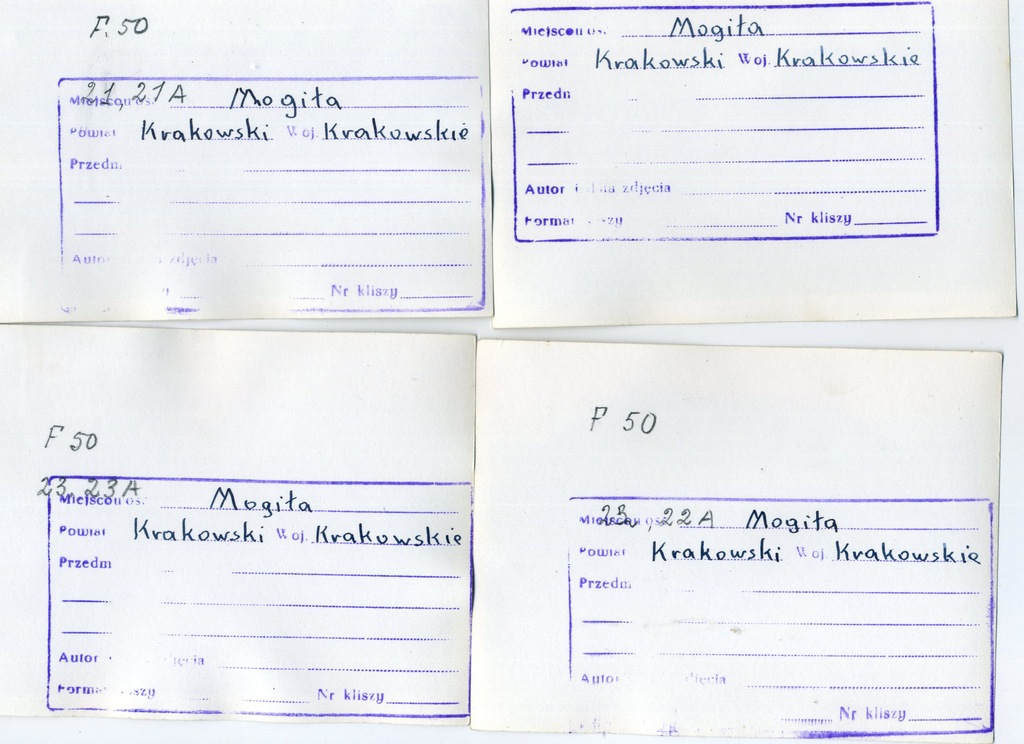 F. 50
21, 21A
Miejscowoś. Mogiła
Powiat Krakowski Woj. Krakowskie
Przedm
Autor zdjęcia
Nr kliszy
Miejscowoś. Mogiła
Powiat Krakowski Woj. Krakowskie
Przedm
Autor i data zdjęcia
Format kliszy Nr kliszy
F 50
23, 23A
Miejscowoś. Mogiła
Powiat Krakowski Woj. Krakowskie
Przedm
Autor zdjęcia
Format kliszy Nr kliszy
F 50
22, 22A
Miejscowoś. Mogiła
Powiat Krakowski Woj. Krakowskie
Przedm
Autor zdjęcia
Nr kliszy